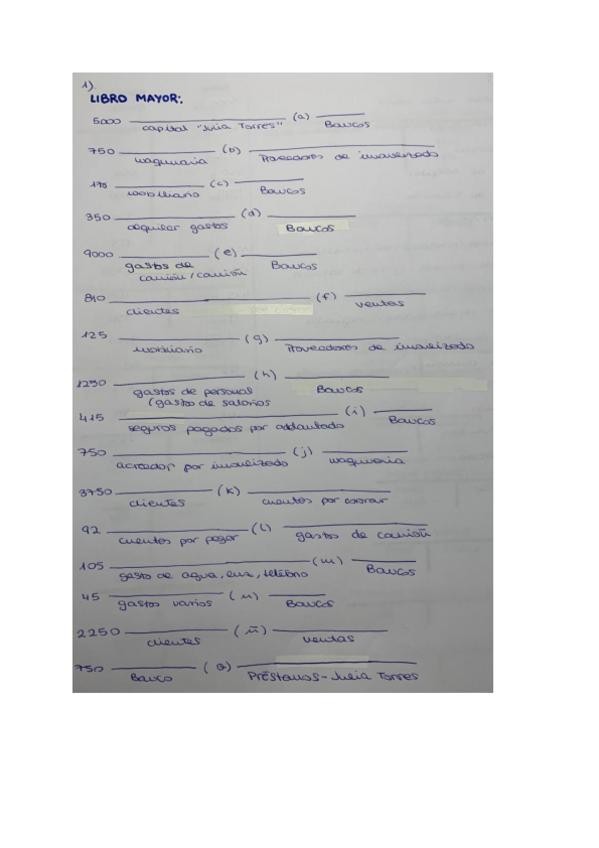 1)
LIBRO MAYOR:
5000 (a)
capital "Julia Torres" Bancos
750 (b)
maquinaria Proveedores de inmovilizado
(c)
mobiliario Bancos
350 (d)
alquiler gastos Bancos
9000 (e)
gastos de Bancos
camión / camión
810 (f)
clientes ventas
125 (g)
mobiliario Proveedores de inmovilizado
1290 (h)
gastos de personal Bancos
(gastos de salarios
415 (i)
seguros pagados por adelantado Bancos
750 (j)
acreedor por inmovilizado maquinaria
3750 (k)
clientes cuentas por cobrar
92 (l)
cuentas por pagar gastos de camión
105 (m)
gasto de agua, luz, teléfono Bancos
45 (n)
gastos varios Bancos
2250 (ñ)
clientes ventas
750 (o)
Banco Préstamos - Julia Torres